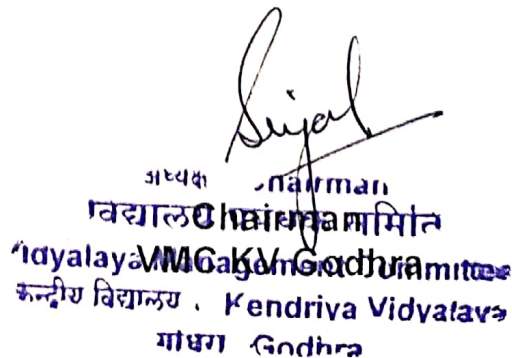 Sujal
अध्यक्ष Chairman
विद्यालय समिति
Chairman
Vidyalaya Management Committee
VMC KV Godhra
केन्द्रीय विद्यालय , Kendriya Vidyalaya
गोधरा Godhra